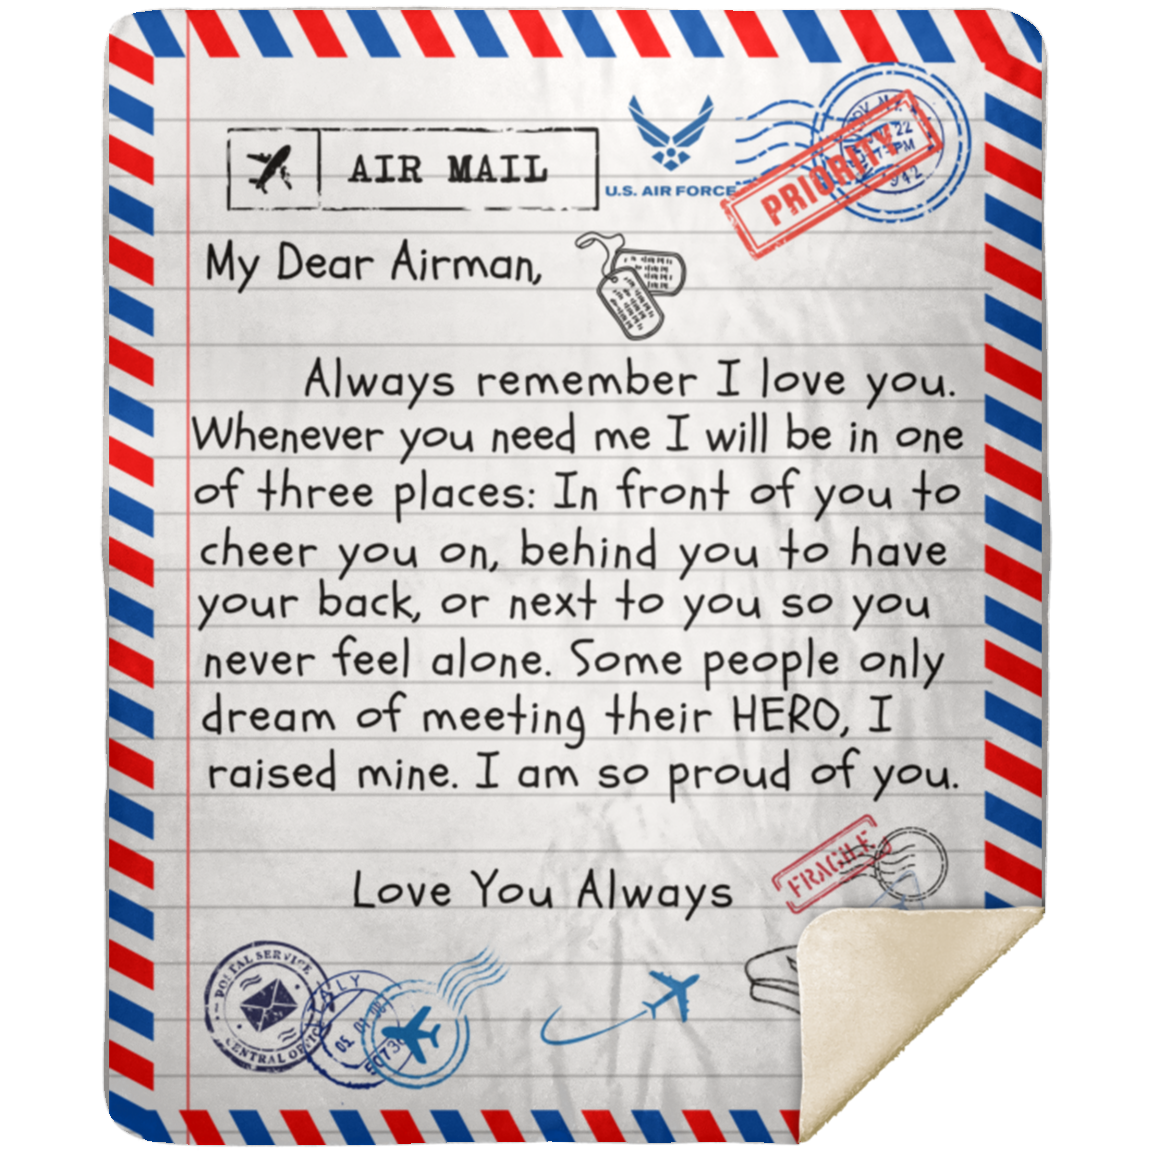 AIR MAIL
U.S. AIR FORCE
PRIORITY
My Dear Airman,
Always remember I love you.
Whenever you need me I will be in one
of three places: In front of you to
cheer you on, behind you to have
your back, or next to you so you
never feel alone. Some people only
dream of meeting their HERO, I
raised mine. I am so proud of you.
FRAGILE
Love You Always
POSTAL SERVICE
CENTRAL OFFICE
ITALY